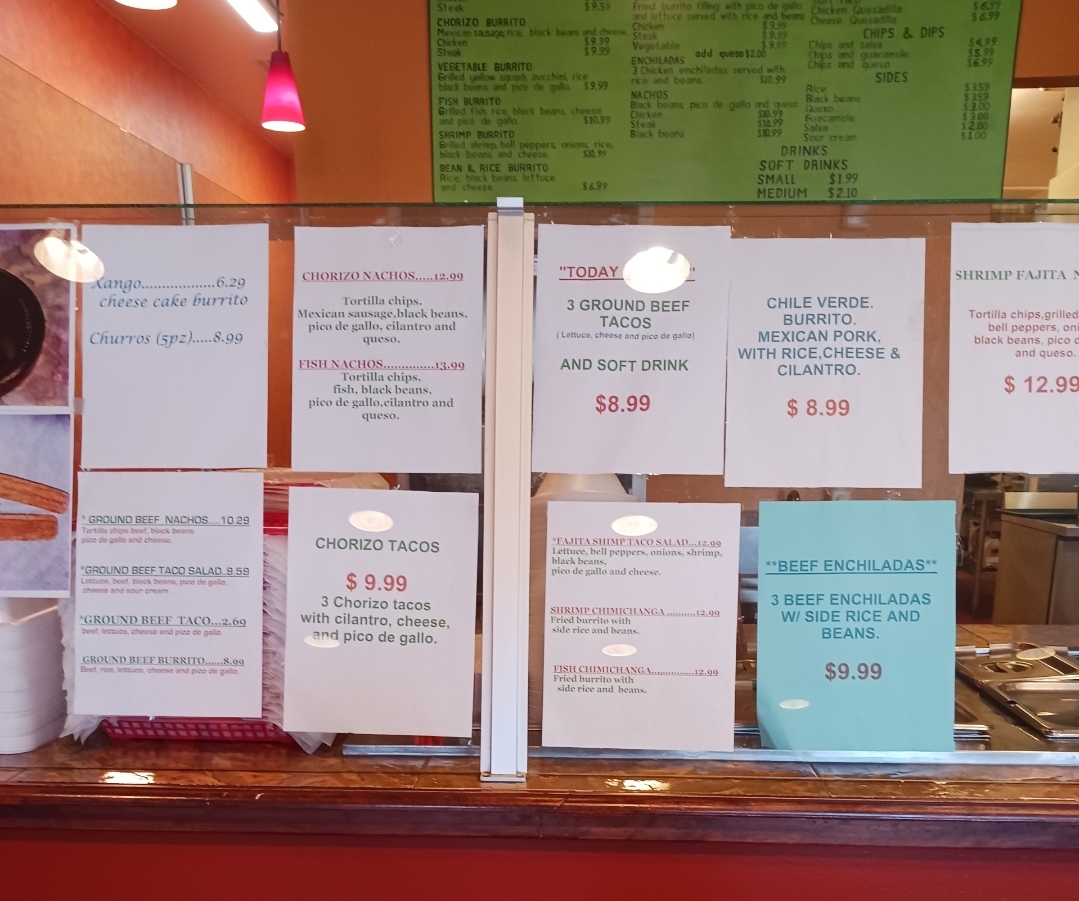 Steak $9.59
CHORIZO BURRITO
Mexican sausage, rice, black beans and cheese
Chicken $9.99
Steak $9.99
VEGETABLE BURRITO
Grilled yellow squash, zucchini, rice
black beans and pico de gallo. $9.99
FISH BURRITO
Grilled fish, rice, black beans, cheese
and pico de gallo. $10.99
SHRIMP BURRITO
Grilled shrimp, bell peppers, onions, rice,
black beans and cheese $10.99
BEAN & RICE BURRITO
Rice, black beans, lettuce
and cheese. $6.99
Fried burrito filling with pico de gallo
and lettuce served with rice and beans
Chicken $9.99
Steak $9.99
Vegetable $9.99
add queso $2.00
ENCHILADAS
3 Chicken enchiladas served with
rice and beans. $10.99
NACHOS
Black beans, pico de gallo and queso
Chicken $10.99
Steak $10.99
Black beans $10.99
Chicken Quesadilla $6.99
Cheese Quesadilla $6.99
CHIPS & DIPS
Chips and salsa $4.99
Chips and guacamole $5.99
Chips and queso $6.99
SIDES
Rice $3.59
Black beans $3.59
Queso $3.00
Guacamole $3.00
Salsa $2.00
Sour cream $1.00
DRINKS
SOFT DRINKS
SMALL $1.99
MEDIUM $2.10
Xango..................6.29
cheese cake burrito
Churros (5pz).....8.99
CHORIZO NACHOS.....12.99
Tortilla chips.
Mexican sausage,black beans,
pico de gallo, cilantro and
queso.
FISH NACHOS..............13.99
Tortilla chips.
fish, black beans,
pico de gallo,cilantro and
queso.
"TODAY "
3 GROUND BEEF
TACOS
( Lettuce, cheese and pico de gallo)
AND SOFT DRINK
$8.99
CHILE VERDE.
BURRITO.
MEXICAN PORK,
WITH RICE,CHEESE &
CILANTRO.
$ 8.99
SHRIMP FAJITA N
Tortilla chips,grilled
bell peppers, oni
black beans, pico d
and queso.
$ 12.99
* GROUND BEEF NACHOS....10.29
Tortilla chips beef, black beans
pico de gallo and cheese.
*GROUND BEEF TACO SALAD..9.59
Lettuce, beef, black beans, pico de gallo,
cheese and sour cream
*GROUND BEEF TACO...2.69
beef, lettuce, cheese and pico de gallo.
GROUND BEEF BURRITO......8.99
Beef, rice, lettuce, cheese and pico de gallo.
CHORIZO TACOS
$ 9.99
3 Chorizo tacos
with cilantro, cheese,
and pico de gallo.
*FAJITA SHIMP TACO SALAD...12.99
Lettuce, bell peppers, onions, shrimp,
black beans,
pico de gallo and cheese.
SHRIMP CHIMICHANGA ..........12.99
Fried burrito with
side rice and beans.
FISH CHIMICHANGA.................12.99
Fried burrito with
side rice and beans.
**BEEF ENCHILADAS**
3 BEEF ENCHILADAS
W/ SIDE RICE AND
BEANS.
$9.99